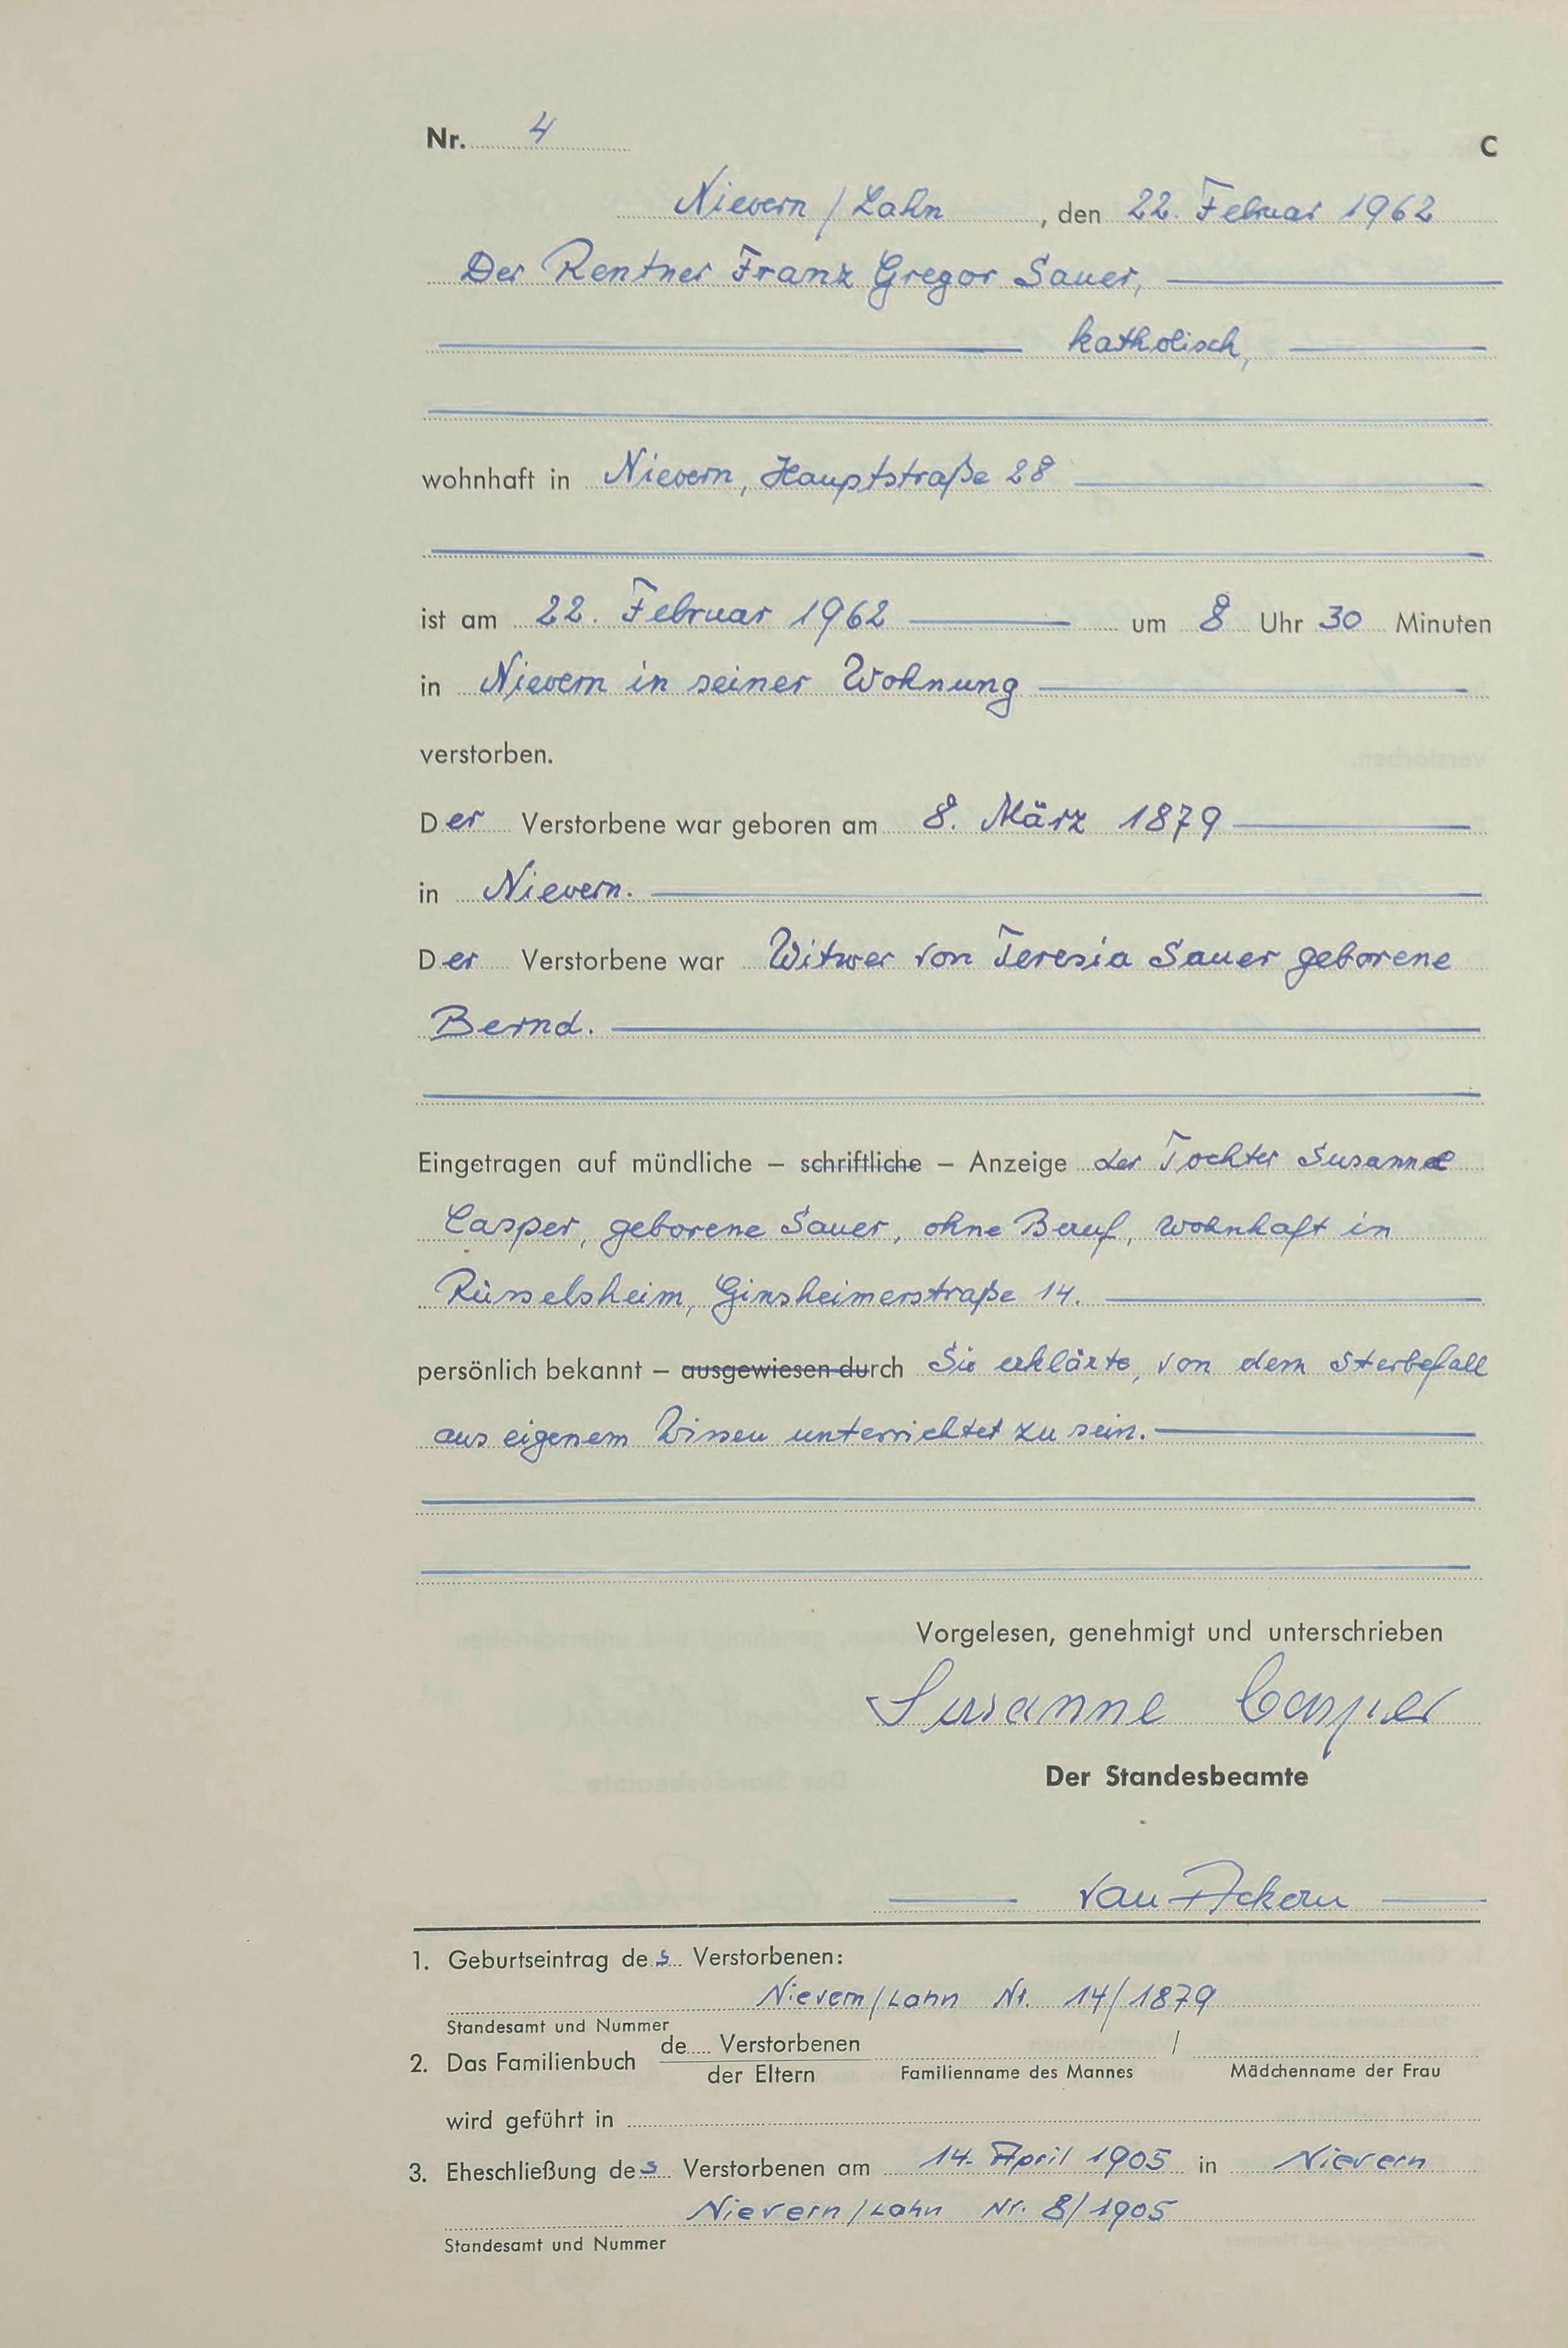 Nr. 4 C
Nievern / Lahn, den 22. Februar 1962
Der Rentner Franz Gregor Sauer,
katholisch,
wohnhaft in Nievern, Hauptstraße 28
ist am 22. Februar 1962 um 8 Uhr 30 Minuten
in Nievern in seiner Wohnung
verstorben.
Der Verstorbene war geboren am 8. März 1879
in Nievern.
Der Verstorbene war Witwer von Teresia Sauer geborene
Bernd.
Eingetragen auf mündliche – schriftliche – Anzeige der Tochter Susanne
Casper, geborene Sauer, ohne Beruf, wohnhaft in
Rüsselsheim, Ginsheimerstraße 14.
persönlich bekannt – ausgewiesen durch Sie erklärte, von dem Sterbefall
aus eigenem Wissen unterrichtet zu sein.
Vorgelesen, genehmigt und unterschrieben
Susanne Casper
Der Standesbeamte
van Ackern
1. Geburtseintrag des Verstorbenen:
Nievern/Lahn Nr. 14/1879
Standesamt und Nummer
2. Das Familienbuch de Verstorbenen /
der Eltern Familienname des Mannes Mädchenname der Frau
wird geführt in
3. Eheschließung des Verstorbenen am 14. April 1905 in Nievern
Nievern/Lahn Nr. 8/1905
Standesamt und Nummer